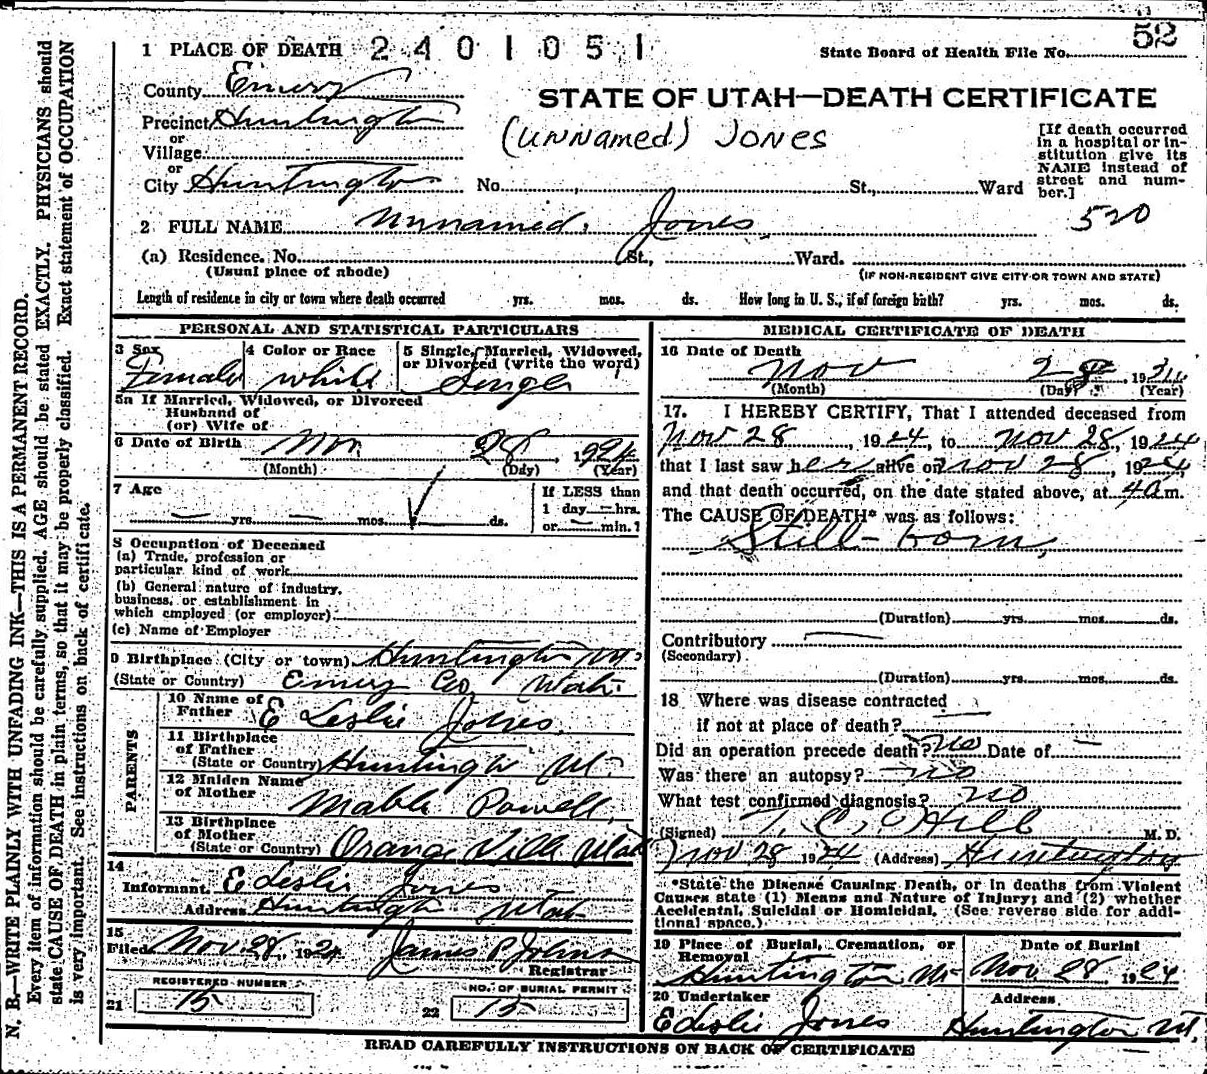 52
1 PLACE OF DEATH 2401051 State Board of Health File No.
County Emery
STATE OF UTAH—DEATH CERTIFICATE
Precinct Huntington
(unnamed) Jones
or
Village
or
City Huntington No. , St., Ward
[If death occurred
in a hospital or in-
stitution give its
NAME instead of
street and num-
ber.]
520
2 FULL NAME Unnamed, Jones
(a) Residence. No. St., Ward.
(Usual place of abode) (IF NON-RESIDENT GIVE CITY OR TOWN AND STATE)
Length of residence in city or town where death occurred yrs. mos. ds. How long in U. S., if of foreign birth? yrs. mos. ds.
PERSONAL AND STATISTICAL PARTICULARS
3 Sex
Female
4 Color or Race
white
5 Single, Married, Widowed,
or Divorced (write the word)
Single
5a If Married, Widowed, or Divorced
Husband of
(or) Wife of
6 Date of Birth Nov 28, 1924
(Month) (Day) (Year)
7 Age
— yrs. — mos. ds.
If LESS than
1 day — hrs.
or — min.?
8 Occupation of Deceased
(a) Trade, profession or
particular kind of work
(b) General nature of industry,
business, or establishment in
which employed (or employer)
(c) Name of Employer
9 Birthplace (City or town) Huntington Ut.
(State or Country) Emery Co, Utah.
PARENTS
10 Name of
Father E Leslie Jones.
11 Birthplace
of Father
(State or Country) Huntington Ut.
12 Maiden Name
of Mother Mable Powell,
13 Birthplace
of Mother
(State or Country) Orange Ville Utah
14
Informant. E Leslie Jones
Address Huntington Utah
15
Filed Nov. 28, 1924 James P Johnson
Registrar
REGISTERED NUMBER
21 15
NO. OF BURIAL PERMIT
22 15
MEDICAL CERTIFICATE OF DEATH
16 Date of Death
Nov 28, 1924
(Month) (Day) (Year)
17. I HEREBY CERTIFY, That I attended deceased from
Nov 28, 1924, to Nov 28, 1924
that I last saw her alive on Nov 28, 1924,
and that death occurred, on the date stated above, at 4 a m.
The CAUSE OF DEATH* was as follows:
Still-born,
(Duration) yrs. mos. ds.
Contributory
(Secondary)
(Duration) yrs. mos. ds.
18 Where was disease contracted
if not at place of death?
Did an operation precede death? no Date of —
Was there an autopsy? no
What test confirmed diagnosis? no
(Signed) T. C. Hill M. D.
Nov 28 1924 (Address) Huntington
*State the Disease Causing Death, or in deaths from Violent
Causes state (1) Means and Nature of Injury; and (2) whether
Accidental, Suicidal or Homicidal. (See reverse side for addi-
tional space.)
19 Place of Burial, Cremation, or
Removal
Huntington Ut
Date of Burial
Nov 28 1924
20 Undertaker
E Leslie Jones
Address
Huntington Ut,
READ CAREFULLY INSTRUCTIONS ON BACK OF CERTIFICATE
N. B.—WRITE PLAINLY WITH UNFADING INK—THIS IS A PERMANENT RECORD.
Every item of information should be carefully supplied. AGE should be stated EXACTLY. PHYSICIANS should
state CAUSE OF DEATH in plain terms, so that it may be properly classified. Exact statement of OCCUPATION
is very important. See instructions on back of certificate.